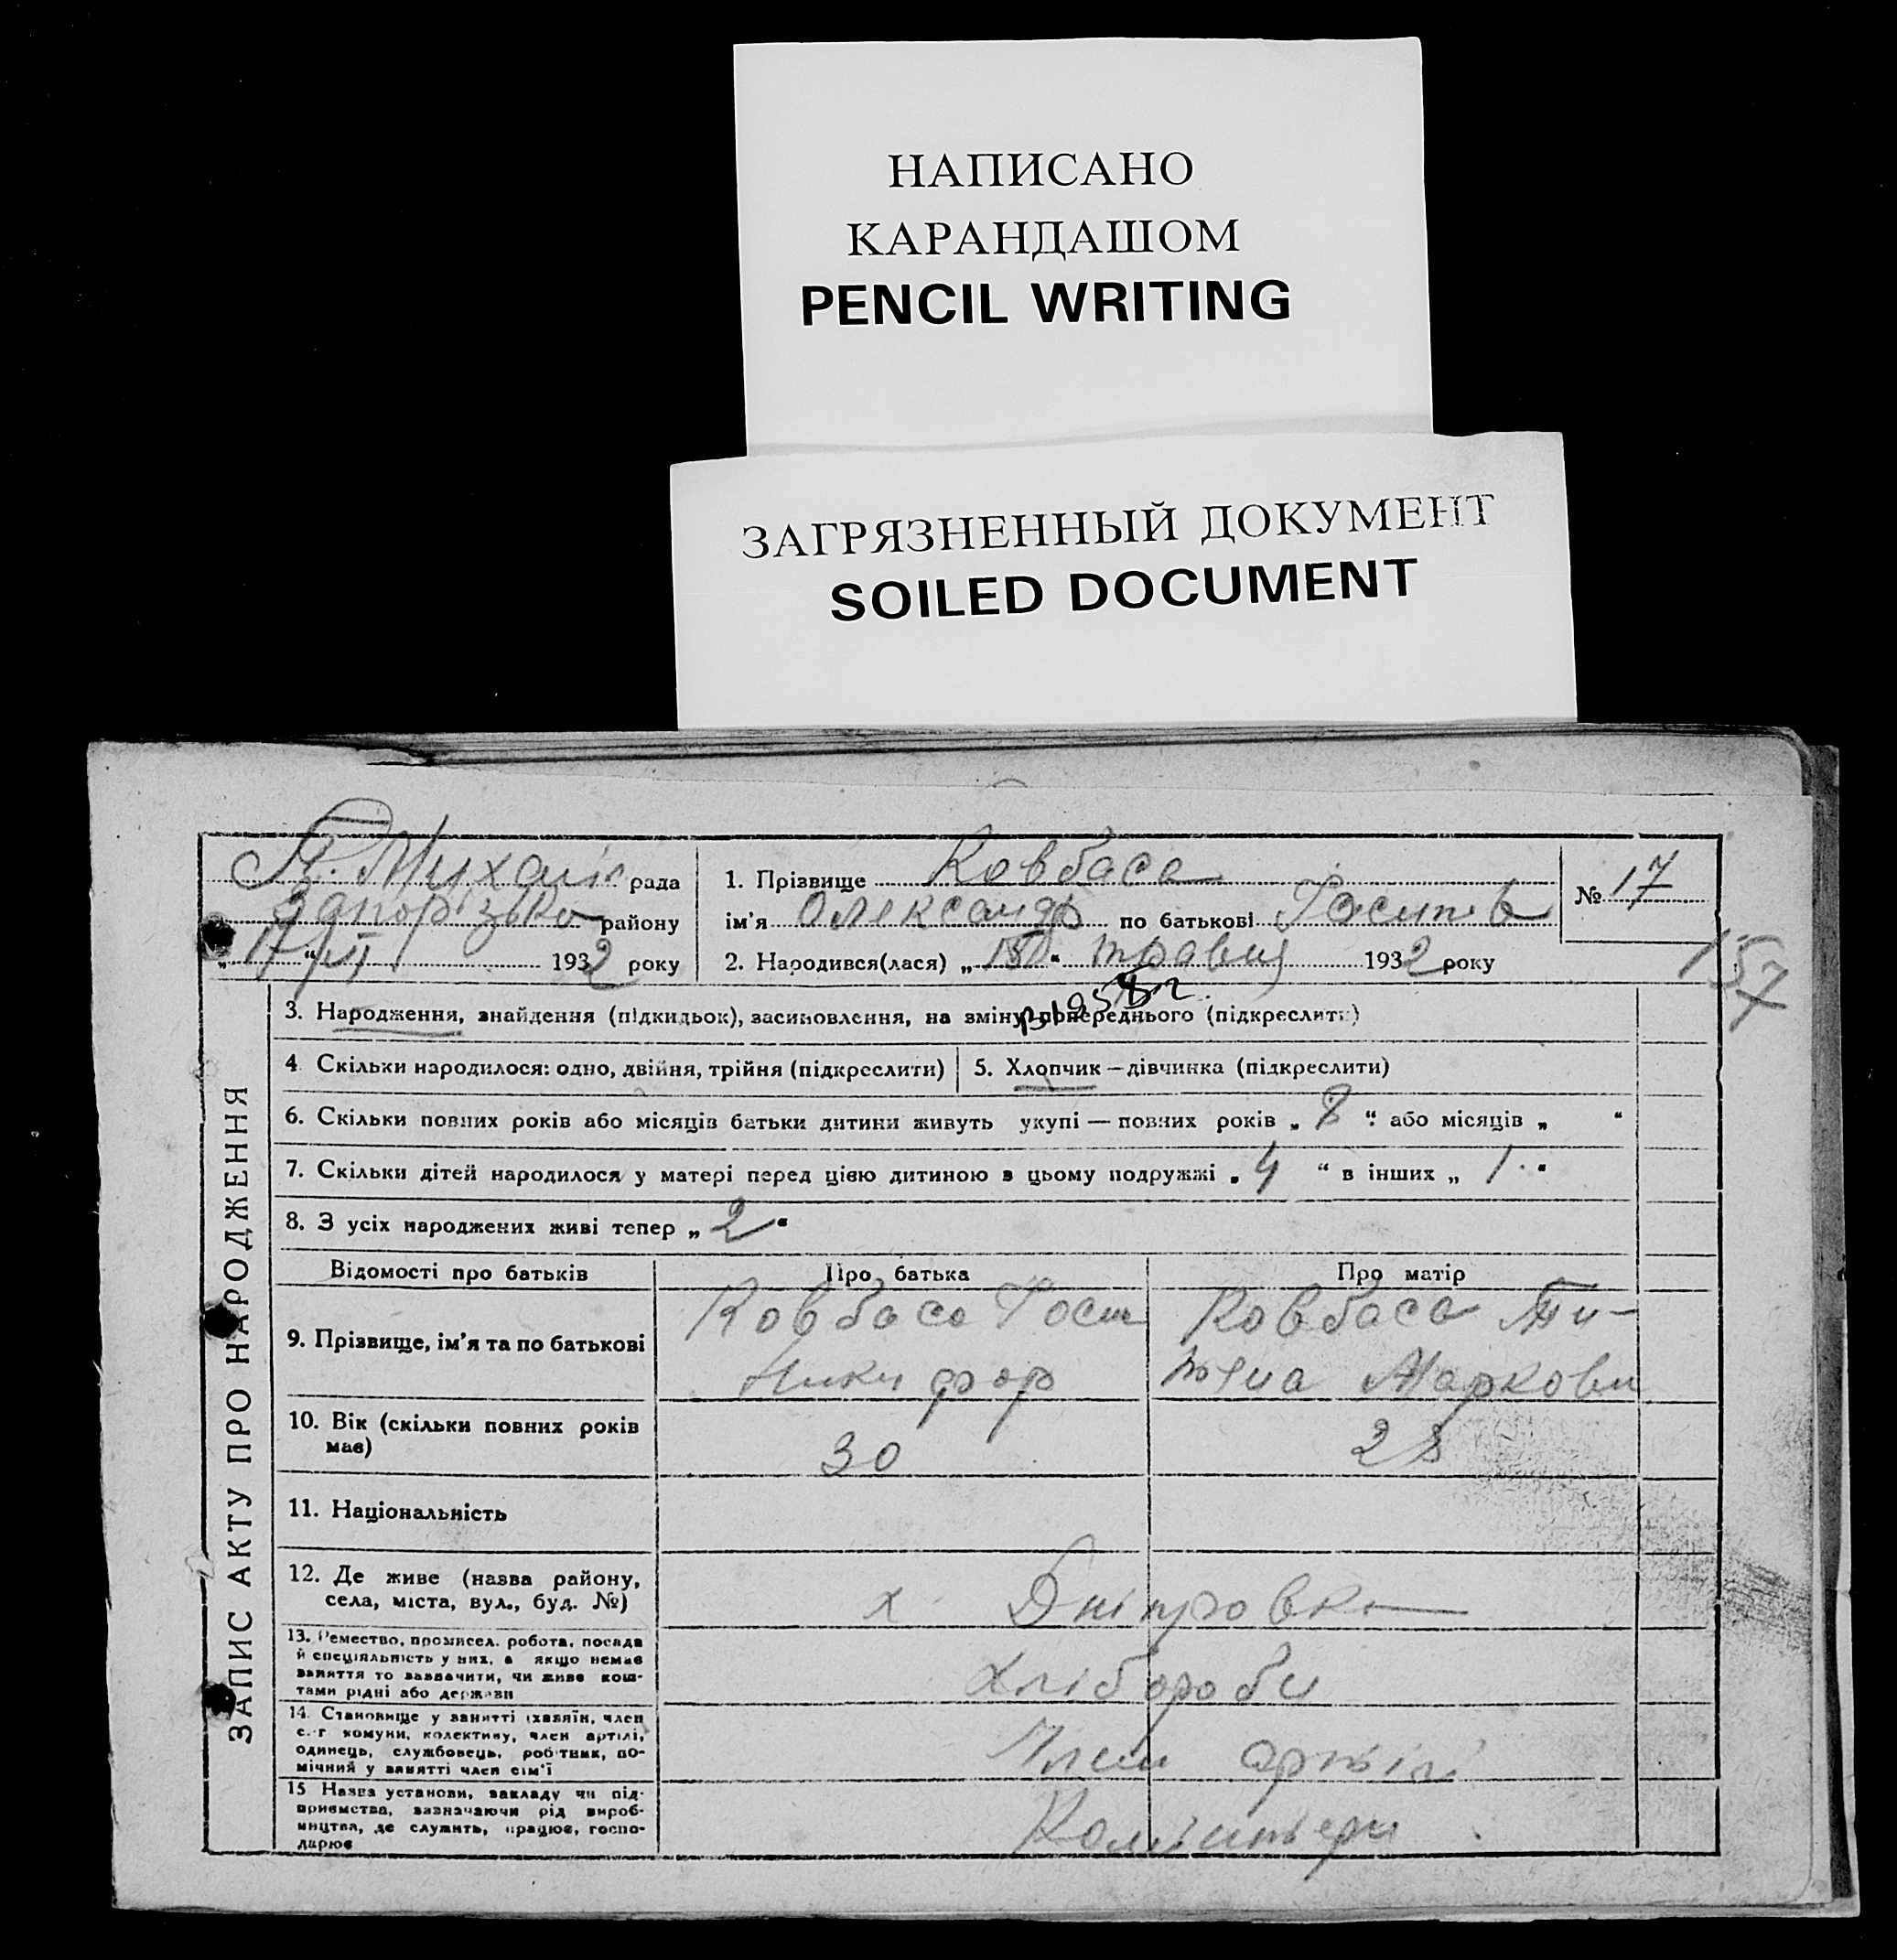 НАПИСАНО
КАРАНДАШОМ
PENCIL WRITING
ЗАГРЯЗНЕННЫЙ ДОКУМЕНТ
SOILED DOCUMENT
рада
района Запорізько району
„17/VI“ 1932 року
1. Прізвище Ковбаса
ім'я Олександр по батькові
2. Народився(лася) „ “ травня 1932 року
№ 17
157
ЗАПИС АКТУ ПРО НАРОДЖЕННЯ
3. Народження, знайдення (підкидьок), засиновлення, на зміну попереднього (підкреслити)
4 Скільки народилося: одно, двійня, трійня (підкреслити)
5. Хлопчик — дівчинка (підкреслити)
6. Скільки повних років або місяців батьки дитини живуть укупі — повних років „ 8 “ або місяців „ “
7. Скільки дітей народилося у матері перед цією дитиною в цьому подружжі „ 4 “ в інших „ 1 “
8. З усіх народжених живі тепер „ 2 “
Відомості про батьків
Про батька
Про матір
9. Прізвище, ім'я та по батькові
Ковбаса
Никифор
Ковбаса Ти-
тяна Маркови
10. Вік (скільки повних років
має)
30
28
11. Національність
12. Де живе (назва району,
села, міста, вул., буд. №)
х. Дніпровка
13. Ремество, промисел. робота, посада
й спеціяльність у них, а якщо немає
заняття то зазначити, чи живе кош-
тами рідні або держави
Хлібороби
14. Становище у занятті (хазяїн, член
с.-г комуни, колективу, член артілі,
одинець, службовець, робітник, по-
мічний у занятті член сім'ї
Член артілі
15 Назва установи, закладу чи під-
приємства, зазначаючи рід вироб-
ництва, де служить, працює, госпо-
дарює